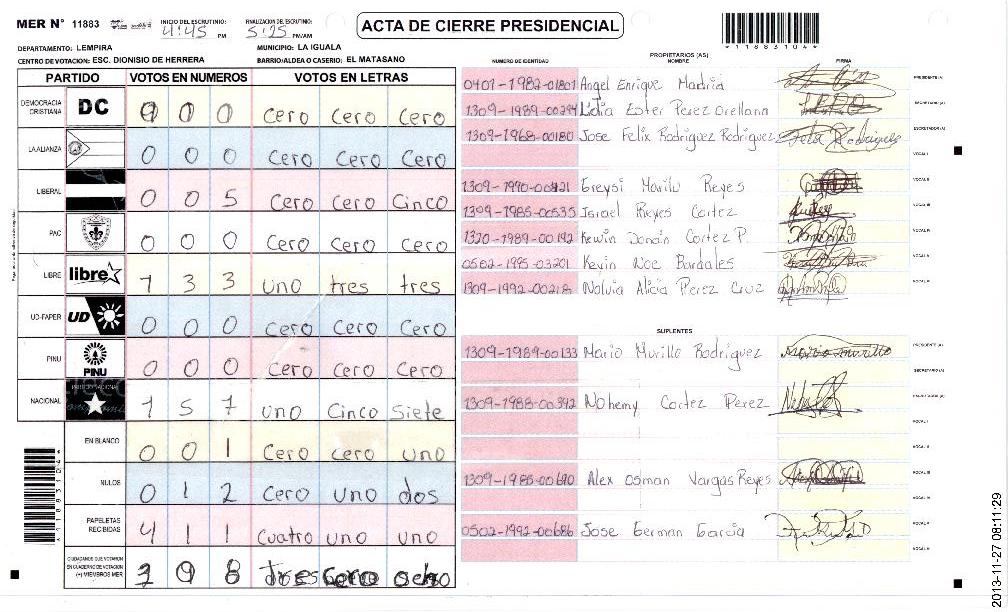 MER N° 11883
INICIO DEL ESCRUTINIO: 4:45 PM
FINALIZACION DE ESCRUTINIO: 5:25 PM/AM
ACTA DE CIERRE PRESIDENCIAL
*1188310 4*
DEPARTAMENTO: LEMPIRA
MUNICIPIO: LA IGUALA
CENTRO DE VOTACION: ESC. DIONISIO DE HERRERA
BARRIO/ALDEA O CASERIO: EL MATASANO
PARTIDO VOTOS EN NUMEROS VOTOS EN LETRAS
DEMOCRACIA CRISTIANA DC 0 0 0 Cero Cero Cero
LA ALIANZA 0 0 0 Cero Cero Cero
LIBERAL 0 0 5 Cero Cero Cinco
PAC 0 0 0 Cero Cero Cero
LIBRE libre 1 3 3 uno tres tres
UD-FAPER UD 0 0 0 Cero Cero Cero
PINU PINU 0 0 0 Cero Cero Cero
NACIONAL PARTIDO NACIONAL 1 5 7 uno Cinco Siete
EN BLANCO 0 0 1 Cero Cero uno
NULOS 0 1 2 Cero uno dos
PAPELETAS RECIBIDAS 4 1 1 Cuatro uno uno
CIUDADANOS QUE VOTARON EN CUADERNO DE VOTACION (+) MIEMBROS MER 8 tres Cero ocho
PROPIETARIOS (AS)
NUMERO DE IDENTIDAD NOMBRE FIRMA
0401-1982-01801 Angel Enrique Madrid PRESIDENTE (A)
1309-1989-00294 Lidia Ester Perez Orellana SECRETARIO (A)
1309-1968-00180 Jose Felix Rodriguez Rodriguez ESCRUTADOR (A)
VOCAL I
1309-1990-00421 Greysi Marilu Reyes VOCAL II
1309-1985-00535 Israel Reyes Cortez VOCAL III
1320-1989-00192 Kewin Donán Cortez P. VOCAL IV
0502-1995-03201 Kevin Noe Bardales VOCAL V
1309-1992-00218 Nolvia Alicia Perez Cruz VOCAL VI
SUPLENTES
1309-1989-00133 Mario Murillo Rodriguez PRESIDENTE (A)
SECRETARIO (A)
1309-1988-00392 Nohemy Cortez Perez ESCRUTADOR (A)
VOCAL I
VOCAL II
1309-1985-00690 Alex Osman Vargas Reyes VOCAL III
VOCAL IV
0502-1992-00686 Jose German Garcia VOCAL V
VOCAL VI
2013-11-27 08:11:29